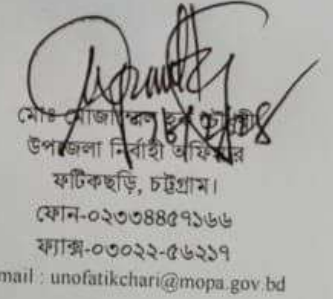 মোঃ মোজাম্মেল হক চৌধুরী
উপজেলা নির্বাহী অফিসার
ফটিকছড়ি, চট্টগ্রাম।
ফোন-০২৩৩৪৪৫৭১৬৬
ফ্যাক্স-০৩০২২-৫৬২১৭
mail : unofatikchari@mopa.gov.bd